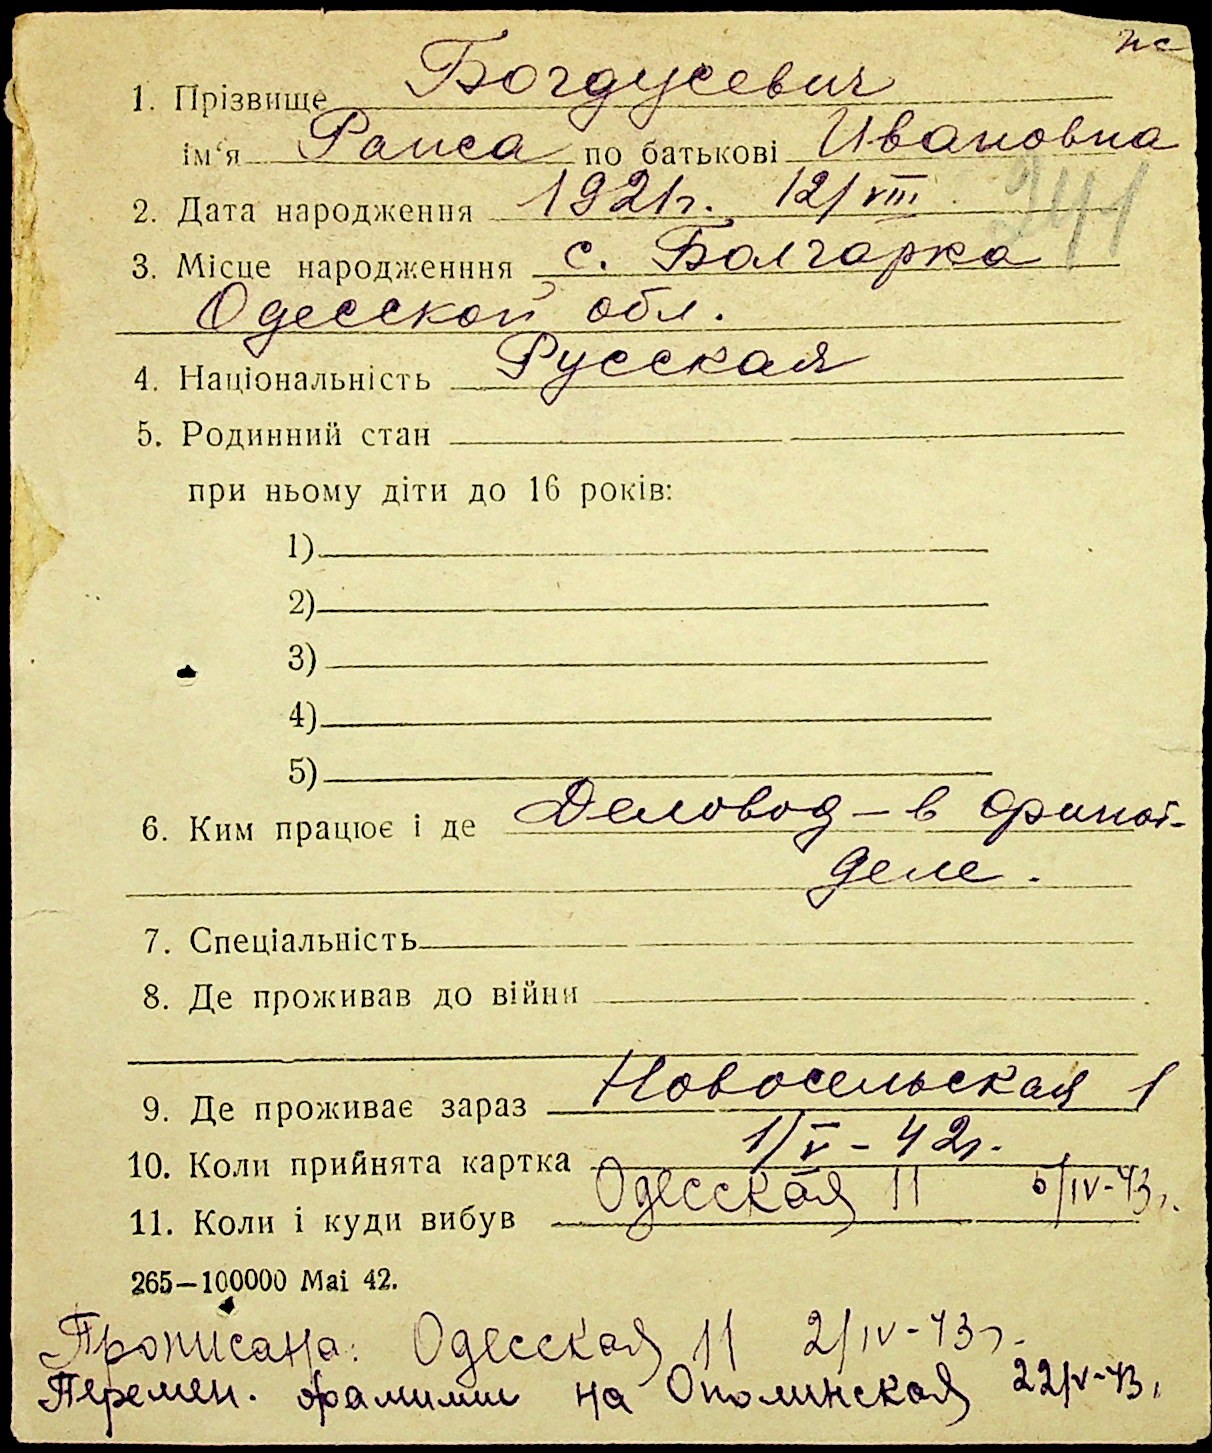 пс
1. Прізвище Богдусевич
ім'я Раиса по батькові Ивановна
2. Дата народження 1921г. 12/VIII
241
3. Місце народженння с. Болгарка
Одесской обл.
4. Національність Русская
5. Родинний стан
при ньому діти до 16 років:
1)
2)
3)
4)
5)
6. Ким працює і де Деловод – в финот-
деле.
7. Спеціальність
8. Де проживав до війни
9. Де проживає зараз Новосельская 1
10. Коли прийнята картка 1/V – 42г.
11. Коли і куди вибув Одесская 11 /IV-43г.
265—100000 Mai 42.
Прописана: Одесская 11 2/IV-43г.
Перемен. фамилии на Ополинская 22/V-43г.